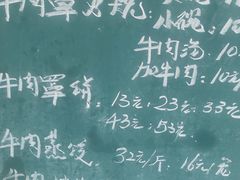 牛肉罩
小碗
牛肉汤: 10元
加牛肉: 10元
牛肉罩饼: 13元; 23元; 33元
43元; 53元
牛肉蒸饺 32元/斤; 16元/笼
牛肉